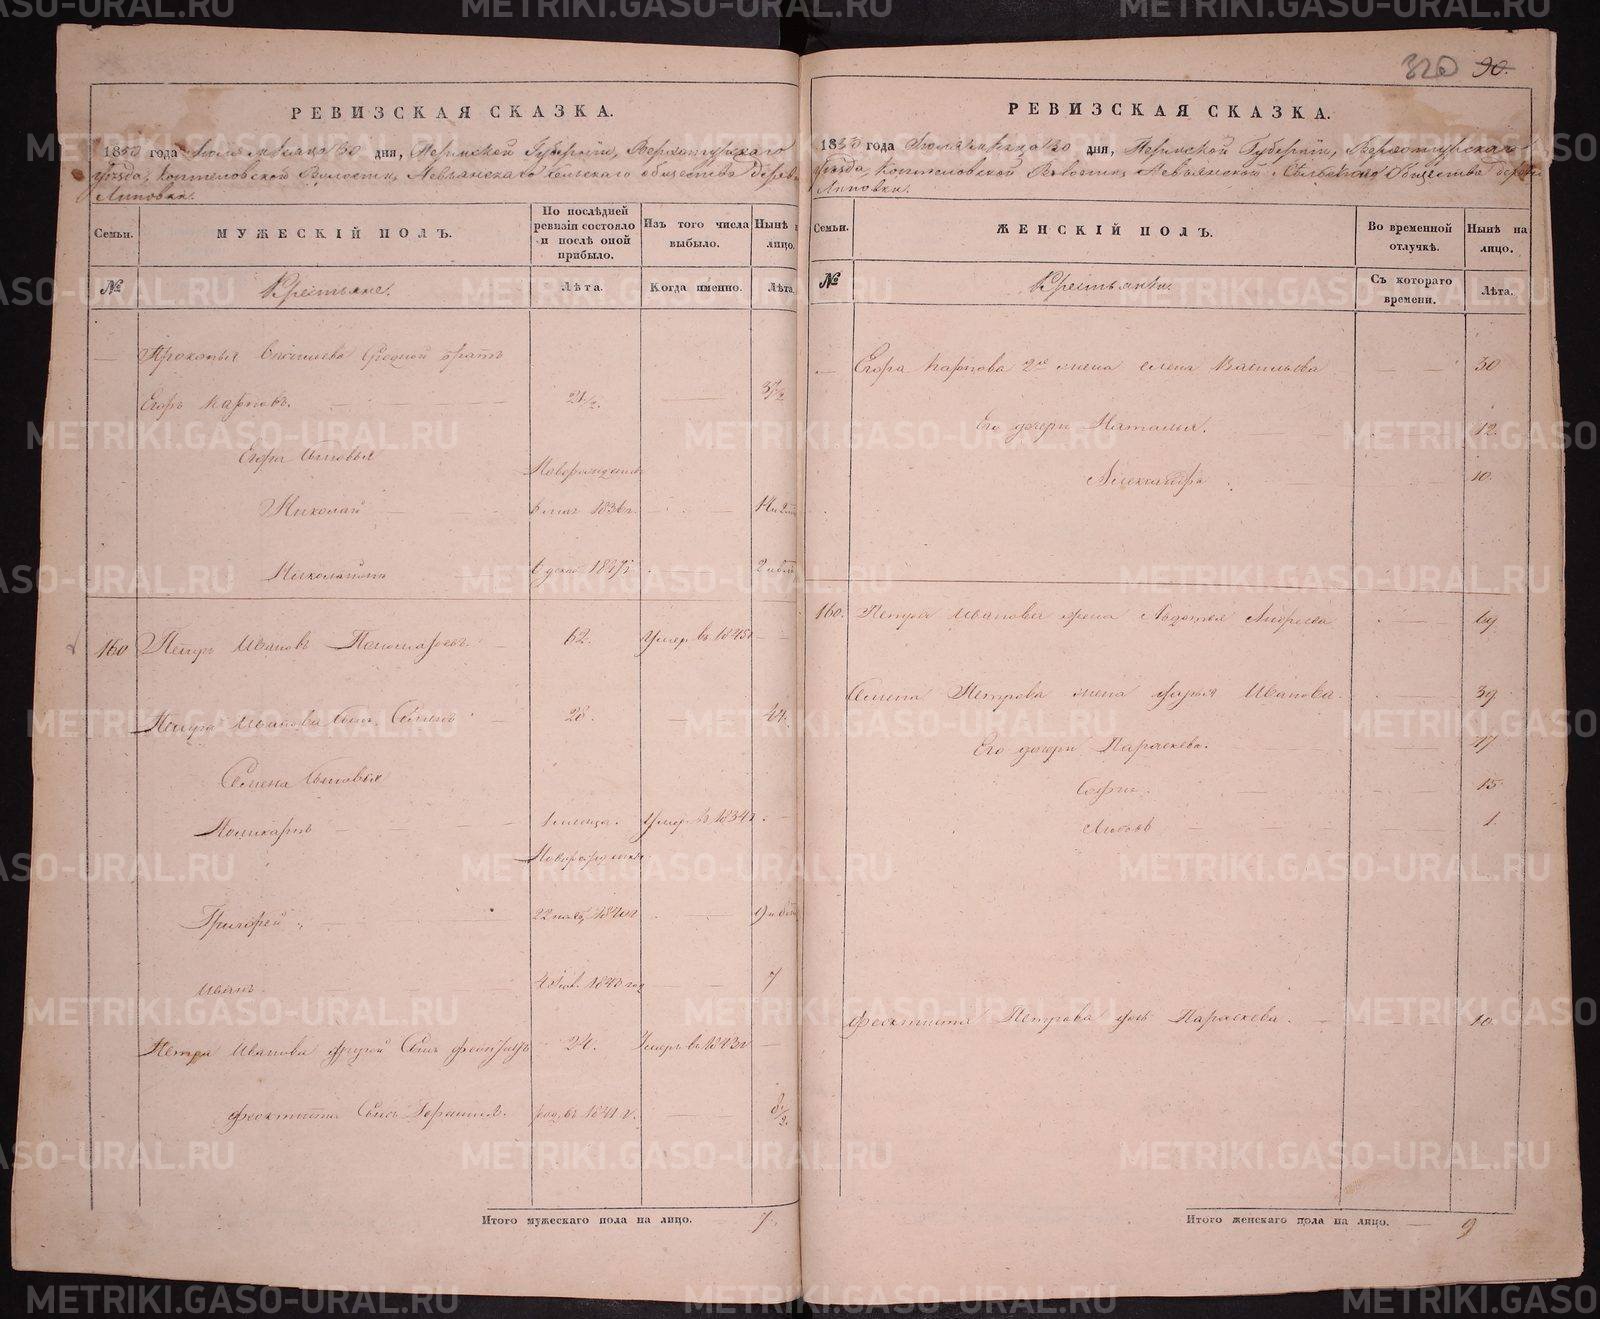 326 90.
РЕВИЗСКАЯ СКАЗКА.
1850 года Июля месяца 30 дня, Пермской Губернiи, Верхотурскаго
уѣзда, Коптеловской Волости, Невьянскаго сельскаго общества дерев
Липовки.
Семьи.
МУЖЕСКIЙ ПОЛЪ.
По послѣдней ревизiи состояло и послѣ оной прибыло.
Изъ того числа выбыло.
Нынѣ на лицо.
№
Крестьяне.
Лѣта.
Когда именно.
Лѣта.
Прокопья родной братъ
Егоръ Карповъ. 21½. 37½
Егора сыновья
Новорожденные
Николай 1836г. 14
2
160 Петръ Ивановъ Пономаревъ. 62. Умеръ въ 1845г
Петра Иванова сынъ Семенъ 28. 44.
Семена сыновья
1 месяца. Умер. въ 1834г.
Новорожденные
Григорей 22 1840г 9
Иванъ 1843 год 7
Петра Иванова другой сынъ 24. Умеръ въ 1843г
Феоктиста сынъ род. въ 1841 г. 8½
Итого мужескаго пола на лицо. 7
РЕВИЗСКАЯ СКАЗКА.
1850 года Июля месяца 30 дня, Пермской Губернiи, Верхотурскаго
уѣзда, Коптеловской Волости, Невьянской Сельскаго Общества деревни
Липовки.
Семьи.
ЖЕНСКIЙ ПОЛЪ.
Во временной отлучкѣ.
Нынѣ на лицо.
№
Крестьянки.
Съ котораго времени.
Лѣта.
Егора Карпова 2я жена Елена Васильева 30
Его дочери Наталья. 12.
Александра 10.
160. Петра Иванова жена Авдотья Андреева 69
Семена Петрова жена Дарья Иванова. 39
Его дочери Параскева. 17
Софья. 15
Любовь 1.
Феоктиста Петрова дочь Параскева. 10.
Итого женскаго пола на лицо. 9
METRIKI.GASO-URAL.RU